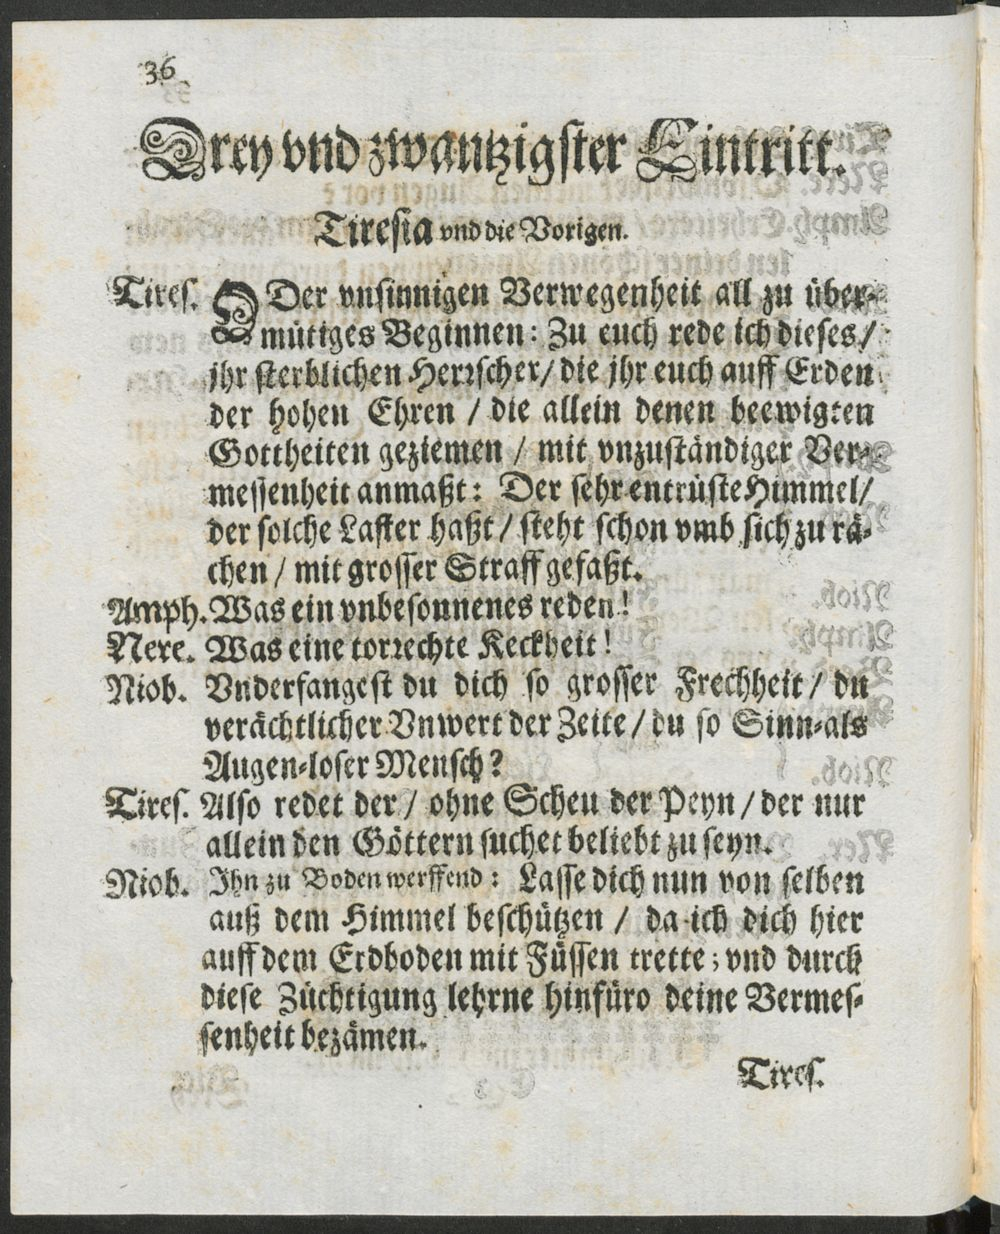 36
Drey vnd zwantzigster Eintritt.
Tiresia vnd die Vorigen.
Tires. O Der vnsinnigen Verwegenheit all zu über-
mütiges Beginnen: Zu euch rede ich dieses/
jhr sterblichen Herrscher/ die jhr euch auff Erden
der hohen Ehren / die allein denen beewigten
Gottheiten geziemen / mit vnzuständiger Ver-
messenheit anmaßt: Der sehr entrüste Himmel/
der solche Laster haßt / steht schon vmb sich zu rä-
chen / mit grosser Straff gefaßt.
Amph. Was ein vnbesonnenes reden!
Nere. Was eine torrechte Keckheit!
Niob. Vnderfangest du dich so grosser Frechheit / du
verächtlicher Vnwert der Zeite / du so Sinn-als
Augen-loser Mensch?
Tires. Also redet der / ohne Scheu der Peyn / der nur
allein den Göttern suchet beliebt zu seyn.
Niob. Ihn zu Boden werffend: Lasse dich nun von selben
auß dem Himmel beschützen / da ich dich hier
auff dem Erdboden mit Füssen trette; vnd durch
diese Züchtigung lehrne hinfüro deine Vermes-
senheit bezämen.
Tires.